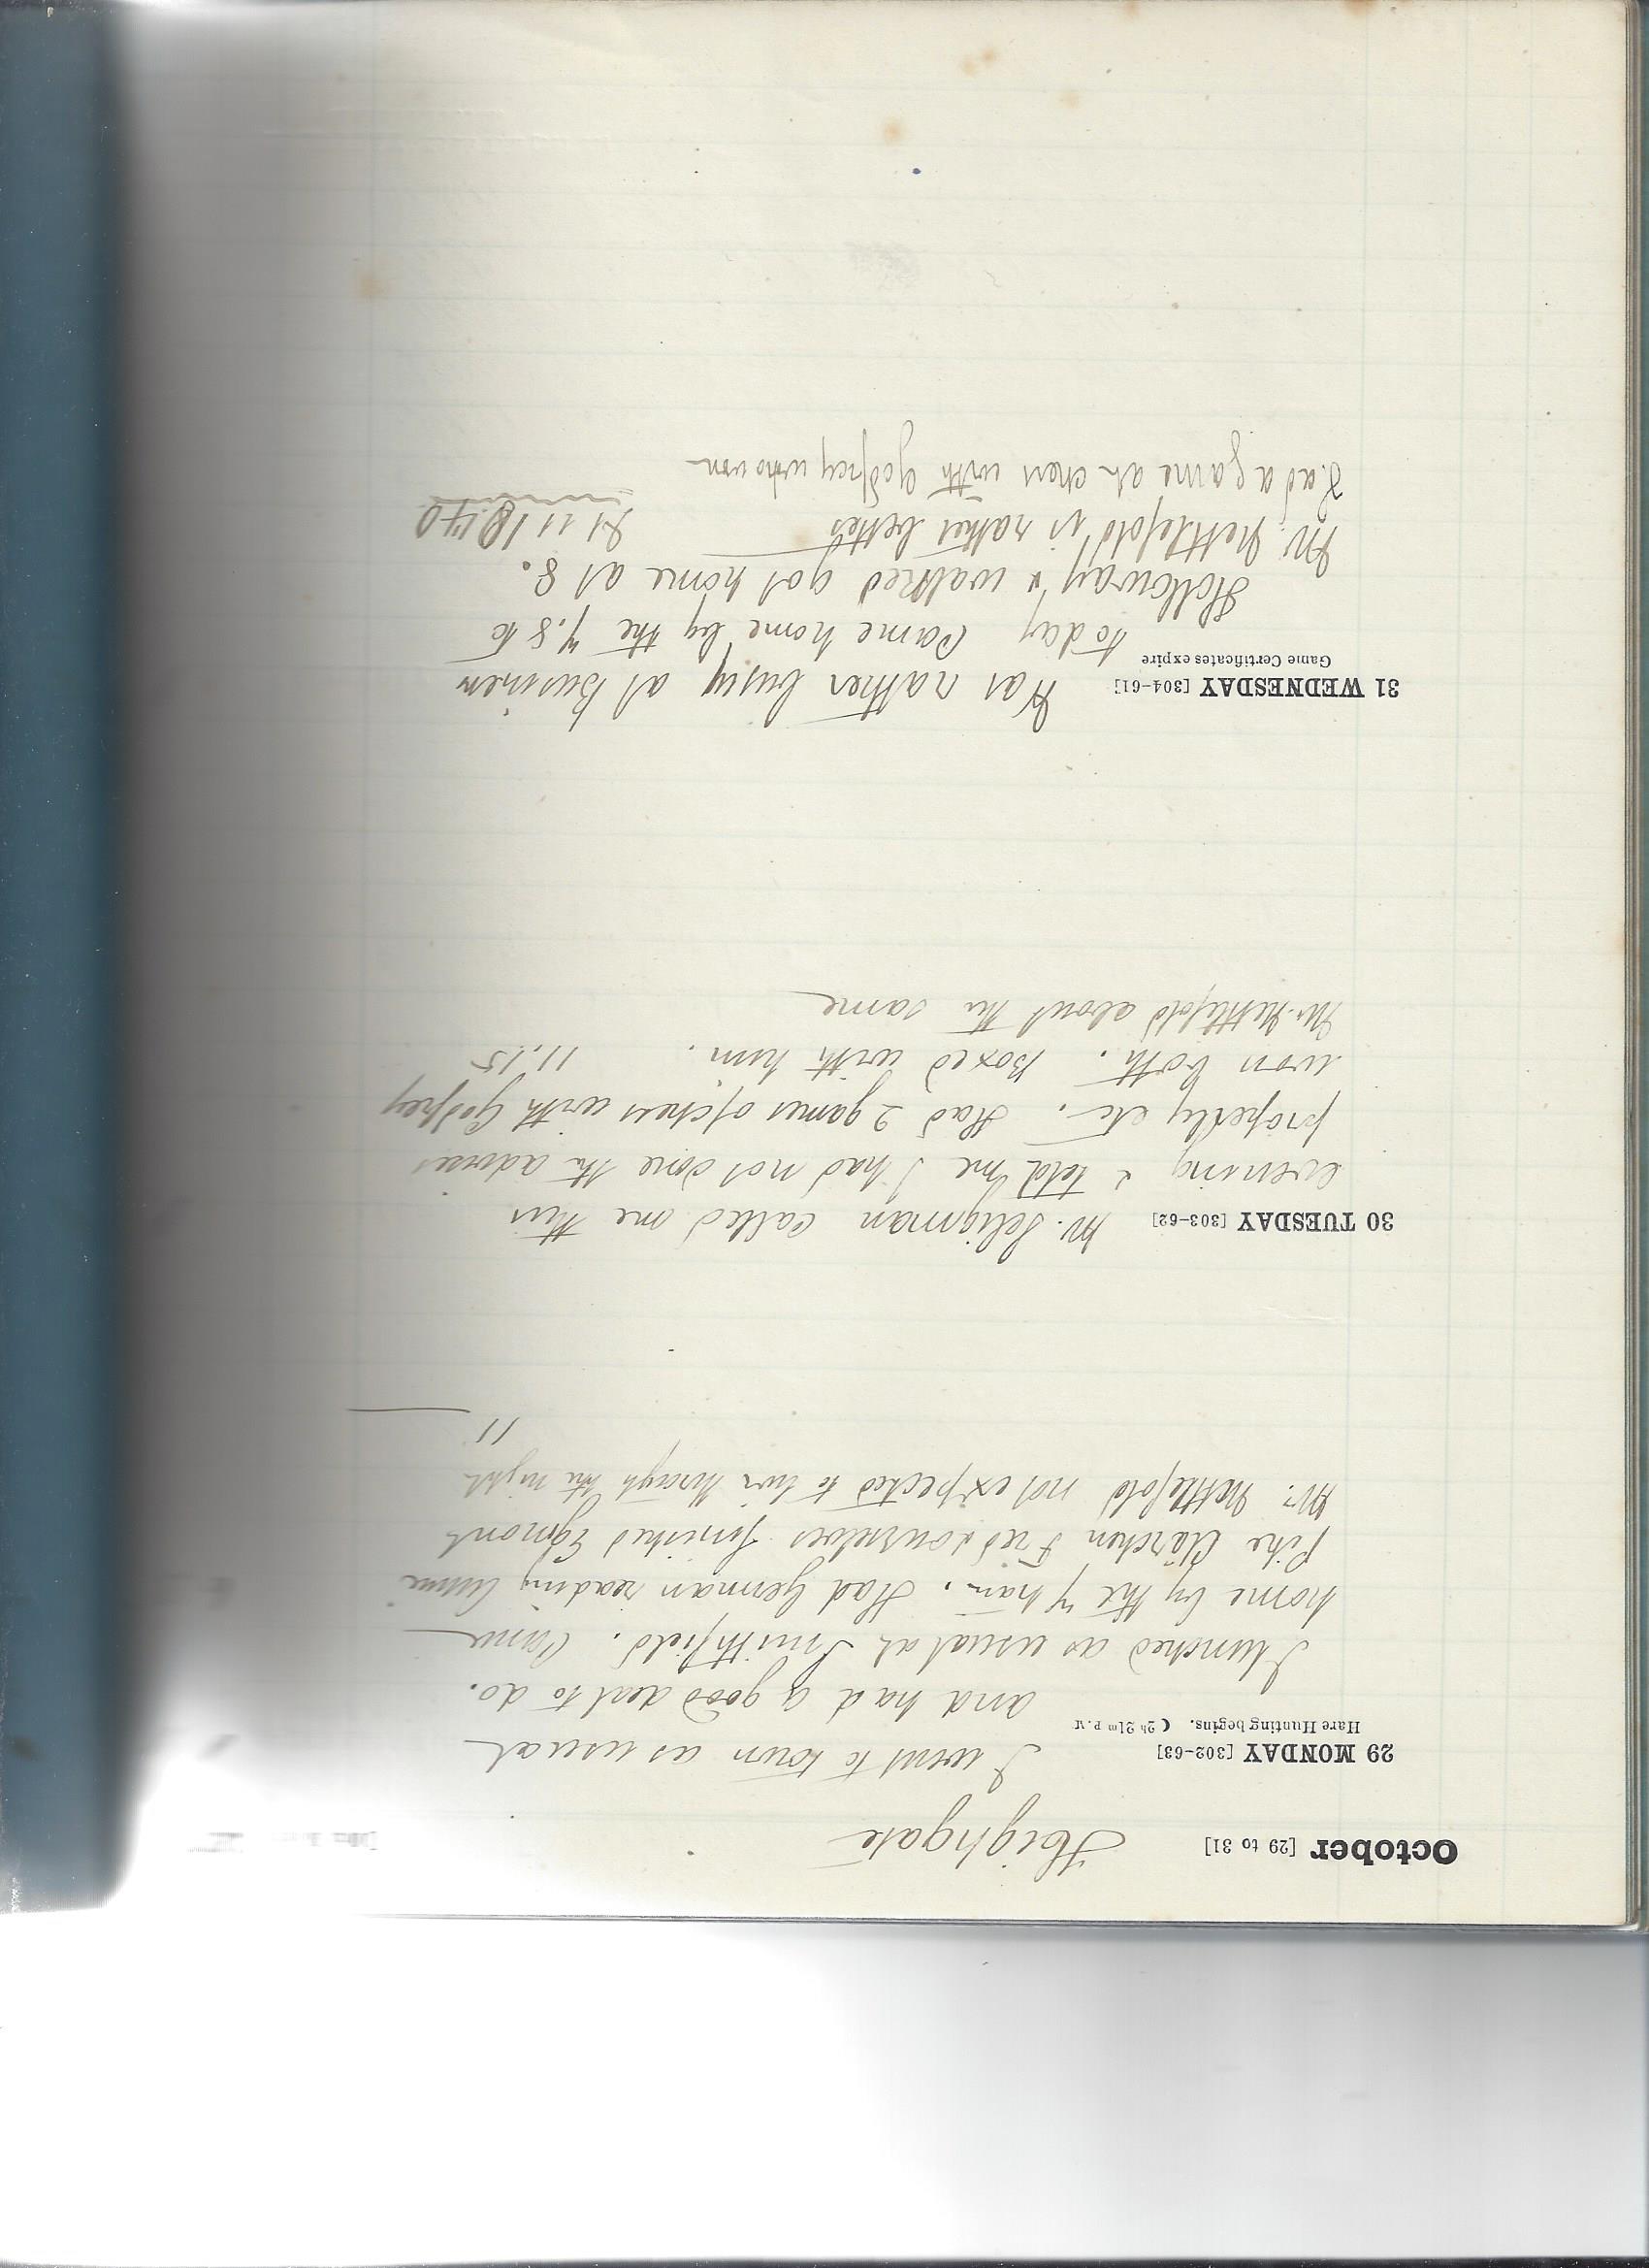 October [29 to 31] Highgate
29 MONDAY [302-63] I went to town as usual
Hare Hunting begins. ☾ 2h 21m P.M. and had a good deal to do.
I lunched as usual at Smithfield. Came
home by the 7 train. Had German reading
Pike Clärchen Fred & ourselves finished Egmont
Mr. Nettlefold not expected to live through the night
11
30 TUESDAY [303-62] Mr. Seligman called me this
evening & told me I had not done the advices
properly etc. Had 2 games of chess with Godfrey
won both. Boxed with him. 11.15
Mr. Nettlefold about the same
31 WEDNESDAY [304-61] Was rather busy at Business
Game Certificates expire today Came home by the 7.8 to
Holloway & walked got home at 8.
Mr. Nettlefold is rather better
Had a game at chess with Godfrey who won